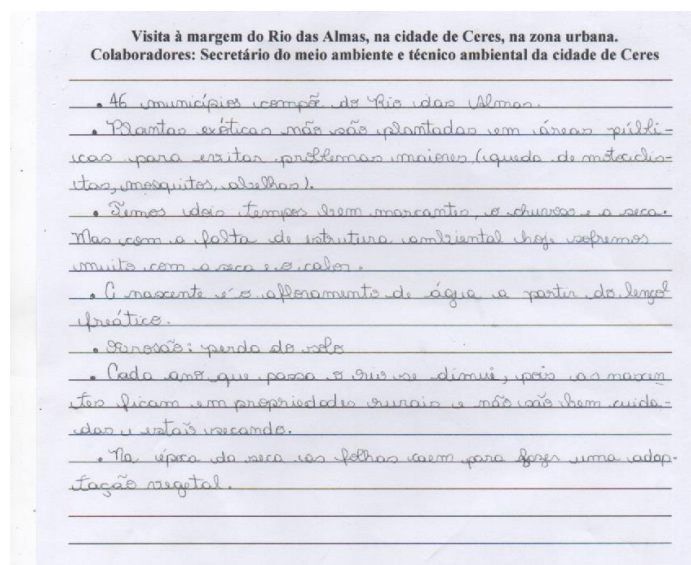 Visita à margem do Rio das Almas, na cidade de Ceres, na zona urbana.
Colaboradores: Secretário do meio ambiente e técnico ambiental da cidade de Ceres
• 46 municípios compõ do Rio das Almas.
• Plantas exóticas não são plantadas em áreas públi-
cas para evitar problemas maiores (queda de motociclis-
tas, mosquitos, abelhas).
• Temos dois tempos bem marcantes, o chuvoso e a seca.
Mas com a falta de estrutura ambiental hoje sofremos
muito com a seca e o calor.
• O nascente é o afloramento de água a partir do lençol
freático.
• Erosão: perda do solo
• Cada ano que passa o rio se dimui, pois as nascen-
tes ficam em propriedades rurais e não são bem cuida-
das e estais secando.
• Na época da seca as folhas caem para fazer uma adap-
tação vegetal.